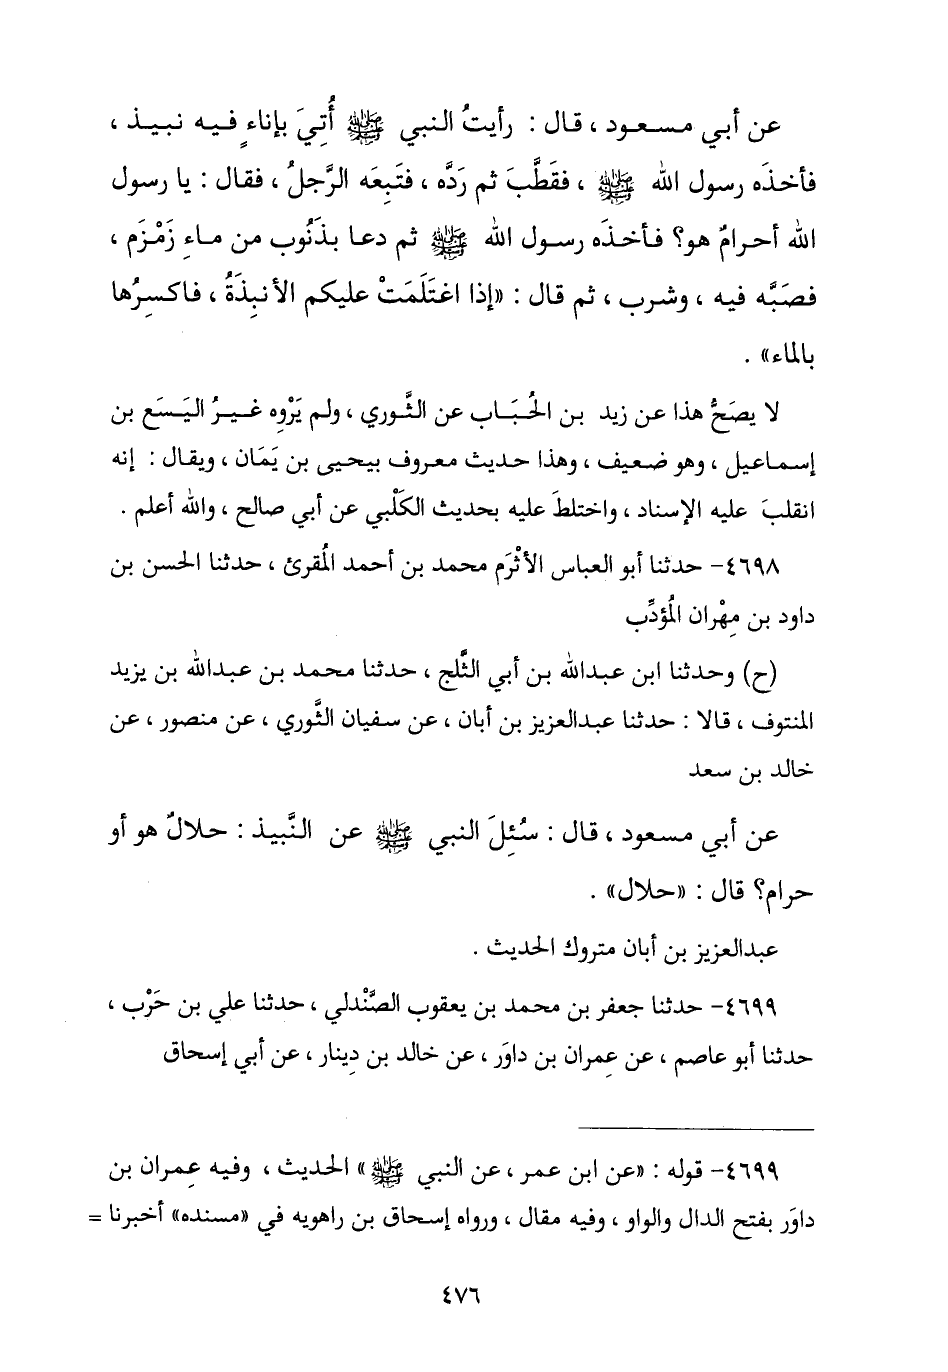 عن أبي مسعود ، قال : رأيتُ النبي ﷺ أُتِيَ بإناءٍ فيه نبيذ ،
فأخذَه رسول الله ﷺ ، فقَطَّبَ ثم رَدَّه ، فتَبِعَه الرَّجلُ ، فقال : يا رسول
الله أحرامٌ هو؟ فأخذَه رسول الله ﷺ ثم دعا بذَنُوب من ماءِ زَمْزَم ،
فصَبَّه فيه ، وشرب ، ثم قال : «إذا اغتَلَمَتْ عليكم الأنبِذَةُ ، فاكسِرُها
بالماء» .
لا يصَحُّ هذا عن زيد بن الحُبَاب عن الثَّوري ، ولم يَرْوِه غيرُ اليَسَع بن
إسماعيل ، وهو ضعيف ، وهذا حديث معروف بيحيى بن يَمَان ، ويقال : إنه
انقلبَ عليه الإسناد ، واختلطَ عليه بحديث الكَلْبي عن أبي صالح ، والله أعلم .
٤٦٩٨- حدثنا أبو العباس الأثْرَم محمد بن أحمد المُقرئ ، حدثنا الحسن بن
داود بن مِهْران المُؤدِّب
(ح) وحدثنا ابن عبدالله بن أبي الثَّلج ، حدثنا محمد بن عبدالله بن يزيد
المنتوف ، قالا : حدثنا عبدالعزيز بن أبان ، عن سفيان الثَّوري ، عن منصور ، عن
خالد بن سعد
عن أبي مسعود ، قال : سُئِلَ النبي ﷺ عن النَّبيذ : حلالٌ هو أو
حرام؟ قال : «حلال» .
عبدالعزيز بن أبان متروك الحديث .
٤٦٩٩- حدثنا جعفر بن محمد بن يعقوب الصَّنْدلي ، حدثنا علي بن حَرْب ،
حدثنا أبو عاصم ، عن عِمران بن داوَر ، عن خالد بن دِينار ، عن أبي إسحاق
٤٦٩٩- قوله : «عن ابن عمر ، عن النبي ﷺ» الحديث ، وفيه عِمران بن
داوَر بفتح الدال والواو ، وفيه مقال ، ورواه إسحاق بن راهويه في «مسنده» أخبرنا =
٤٧٦